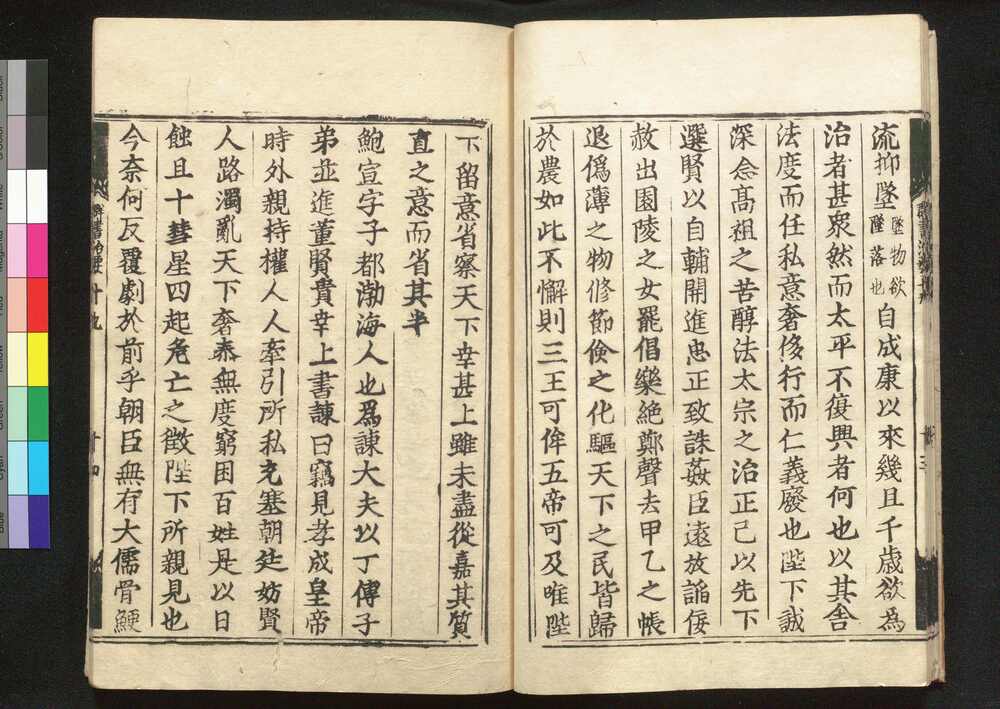 流抑墜墜物欲墮落也自成康以來幾且千歲欲爲
治者甚衆然而太平不復興者何也以其舍
法度而任私意奢侈行而仁義廢也陛下誠
深念髙祖之苦醇法太宗之治正己以先下
選賢以自輔開進忠正致誅姦臣遠放謟佞
赦出園陵之女罷倡樂絶鄭聲去甲乙之帳
退僞薄之物修節儉之化驅天下之民皆歸
於農如此不懈則三王可侔五帝可及唯陛
下留意省察天下幸甚上雖未盡從嘉其質
直之意而省其半
鮑宣字子都渤海人也爲諫大夫以丁傅子
弟並進董賢貴幸上書諫曰竊見孝成皇帝
時外親持權人人牽引所私充塞朝廷妨賢
人路濁亂天下奢泰無度窮困百姓是以日
蝕且十彗星四起危亡之徵陛下所親見也
今奈何反覆劇於前乎朝臣無有大儒骨鯁
群書治要十九
十四